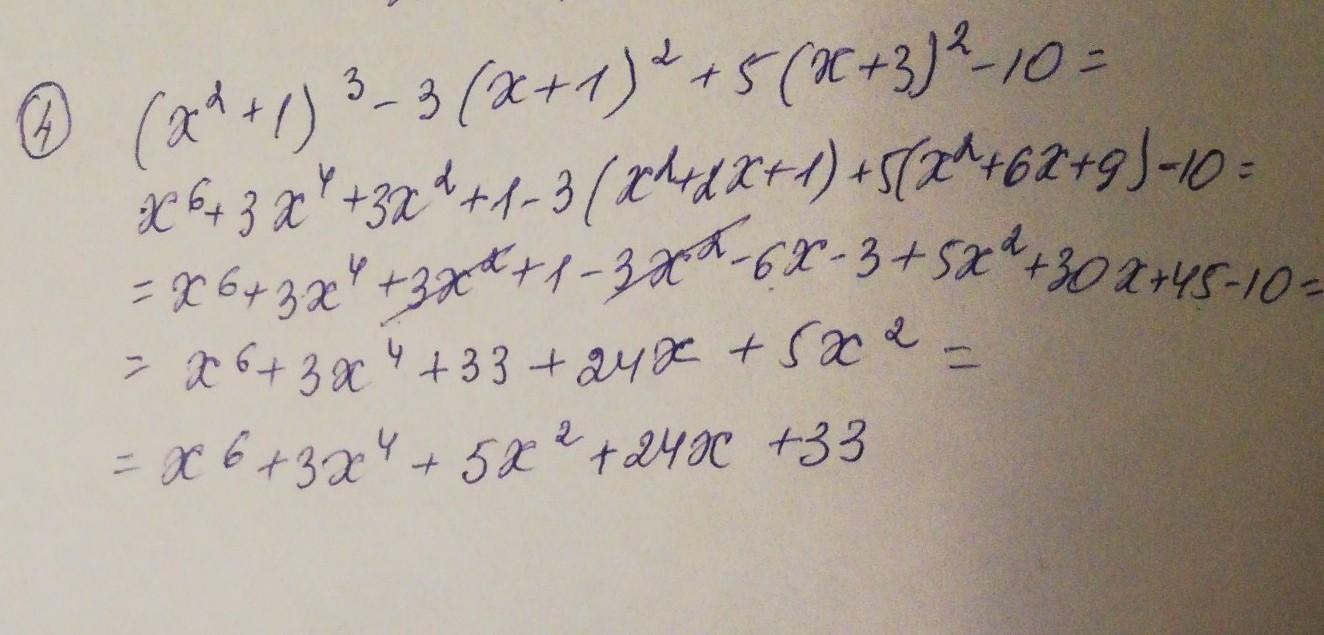 ④ (x²+1)³-3(x+1)²+5(x+3)²-10=
x⁶+3x⁴+3x²+1-3(x²+2x+1)+5(x²+6x+9)-10=
=x⁶+3x⁴+3x²+1-3x²-6x-3+5x²+30x+45-10=
=x⁶+3x⁴+33+24x+5x²=
=x⁶+3x⁴+5x²+24x+33